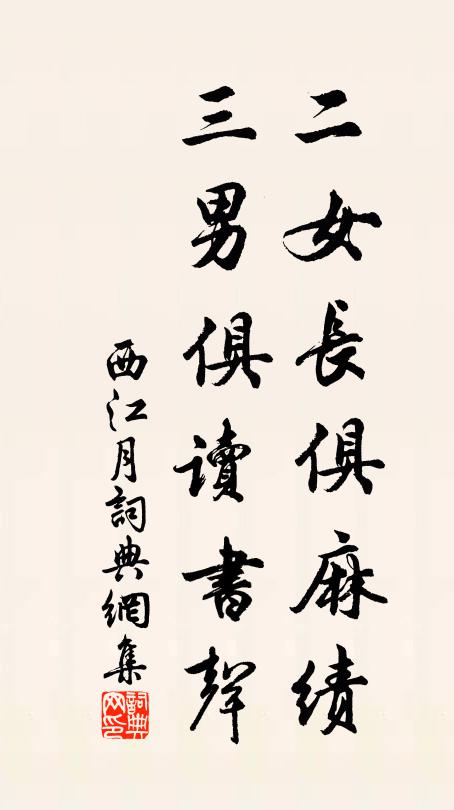 二女長俱麻績
三男俱讀書聲
西江月詞典網集
詞典网印